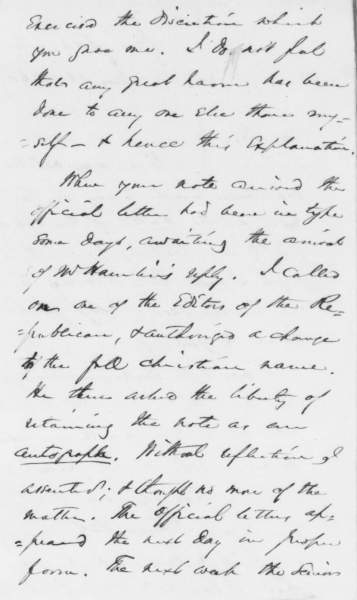 Exercised the discretion which
you gave me. I do not feel
that any great harm has been
done to any one else than my-
=self - & hence this explanation.
When your note arrived the
official letter had been in type
some days, awaiting the arrival
of Mr Hamlin's reply. I called
on one of the Editors of the Re-
=publican, & authorized a change
to the full christian name.
He then asked the liberty of
retaining the note as an
autograph. Without reflection I
assented; & thought no more of the
matter. The official letter ap-
=peared the next day in proper
form. The next week the